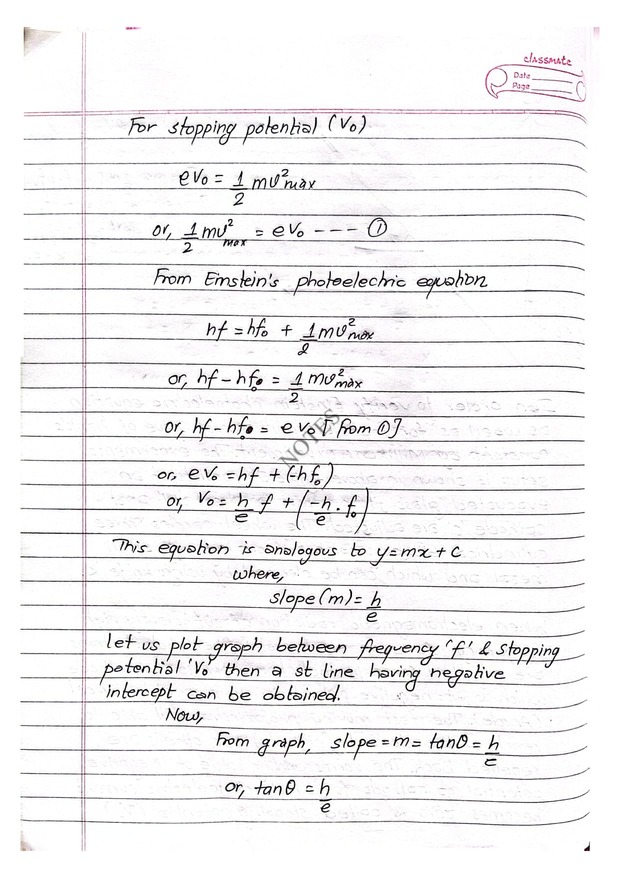 classmate
Date
Page
For stopping potential (V₀)
eV₀ = 1/2 mv²max
or, 1/2 mv²max = eV₀ --- ①
From Einstein's photoelectric equation
hf = hf₀ + 1/2 mv²max
or, hf - hf₀ = 1/2 mv²max
or, hf - hf₀ = eV₀ [from ①]
or, eV₀ = hf + (-hf₀)
or, V₀ = h/e f + (-h/e . f₀)
This equation is analogous to y = mx + c
where,
slope (m) = h/e
let us plot graph between frequency 'f' & stopping
potential 'V₀' then a st line having negative
intercept can be obtained.
Now,
From graph, slope = m = tanθ = h/e
or, tanθ = h/e
NOTES